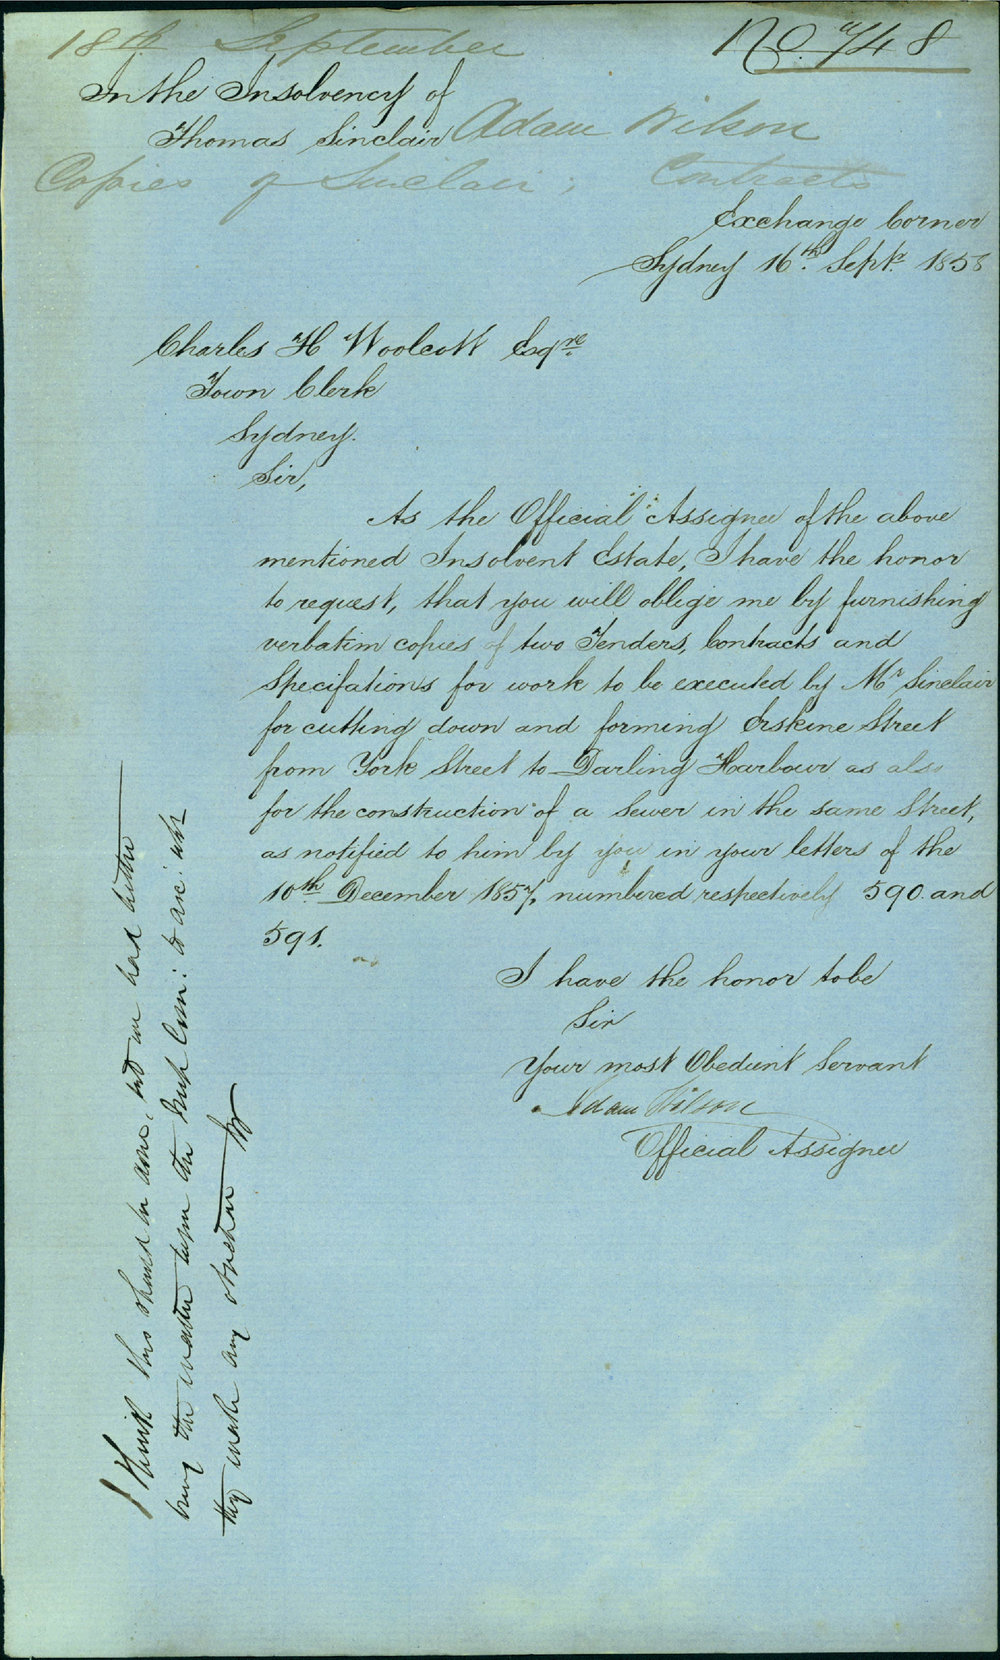 18th September No. 748
In the Insolvency of
Thomas Sinclair Adam Wilson
Copies of Sinclair's Contracts
Exchange Corner
Sydney 16th. Septr. 1858
Charles H Woolcott Esqre.
Town Clerk
Sydney.
Sir,
As the Official Assignee of the above
mentioned Insolvent Estate, I have the honor
to request, that you will oblige me by furnishing
verbatim copies of two Tenders, Contracts and
Specifations for work to be executed by Mr Sinclair
for cutting down and forming Erskine Street
from York Street to Darling Harbour as also
for the construction of a Sewer in the same Street,
as notified to him by you in your letters of the
10th December 1857, numbered respectively 590 and
591.
I have the honor to be
Sir
Your most Obedient Servant
Adam Wilson
Official Assignee
I think this should be done, but we had better
bring the matter before the Impt Com: to asc: whr
they make any objection